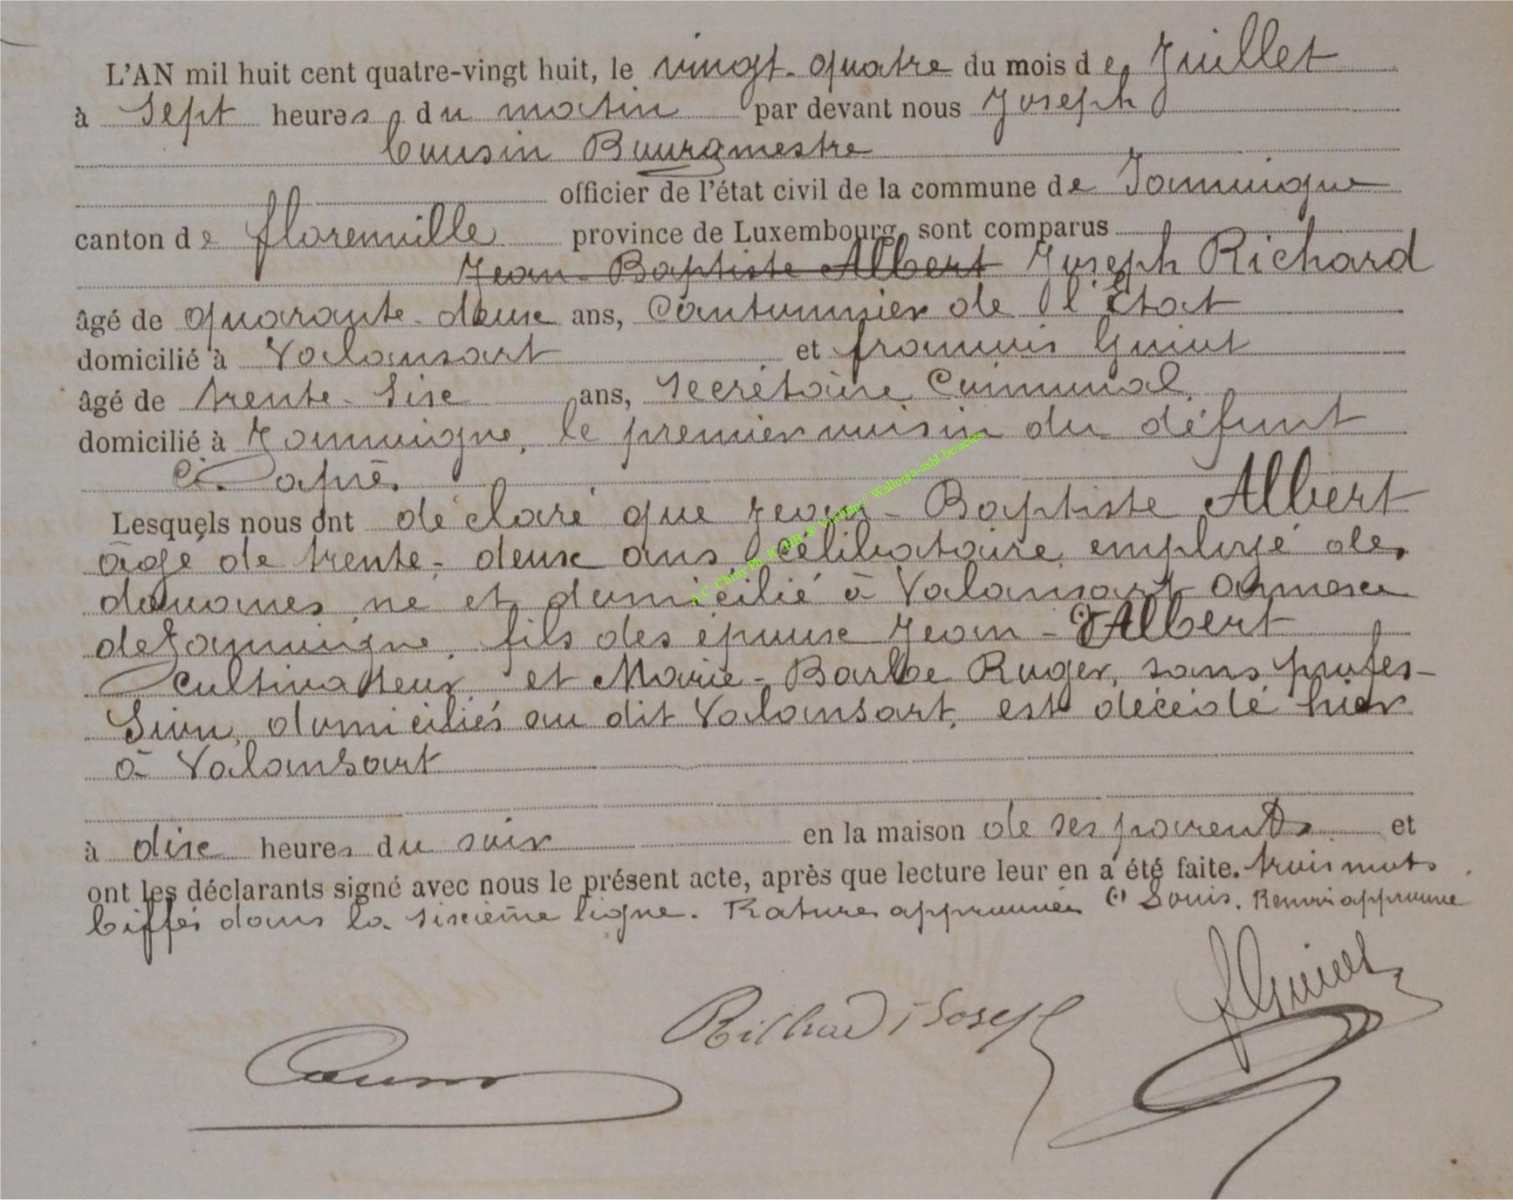 L'AN mil huit cent quatre-vingt huit, le vingt-quatre du mois de Juillet
à Sept heures du matin par devant nous Joseph
Cousin Bourgmestre
officier de l'état civil de la commune de Jamoigne
canton de florenville province de Luxembourg, sont comparus
Jean-Baptiste Albert Joseph Richard
âgé de quarante-deux ans, Cantonnier de l'Etat
domicilié à Valansart et françois Guiot
âgé de trente-six ans, secrétaire Communal,
domicilié à Jamoigne, le premier voisin du défunt
ci-après.
Lesquels nous ont déclaré que Jean-Baptiste Albert
âgé de trente-deux ans célibataire, employé de
douanes né et domicilié à Valansart annexe
de Jamoigne, fils des époux Jean-(+)Albert
cultivateur, et Marie-Barbe Roger, sans profes-
sion, domiciliés au dit Valansart, est décédé hier
à Valansart
à dix heures du soir en la maison de ses parents et
ont les déclarants signé avec nous le présent acte, après que lecture leur en a été faite. trois mots
biffés dans la sixième ligne. Ratures approuvées (+) Louis. Renvoi approuvé
FGuiot
Richard Joseph
Cousin